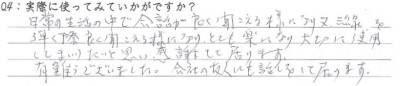 Q4：実際に使ってみていかがですか？
日常の生活の中で会話が良く聞こえる様になり又三線を
弾く際良く聞こえる様になりとても楽になり大切に使用
してまいりたいと思い感謝して居ります。
有難うございました。会社の友人にも話をして居ります。